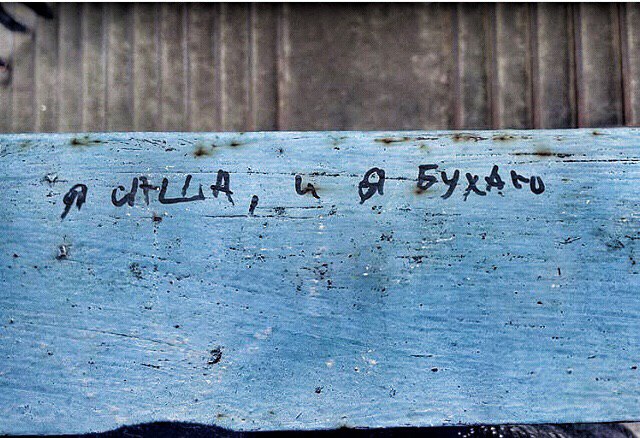 Я САША, и Я БУХАЮ